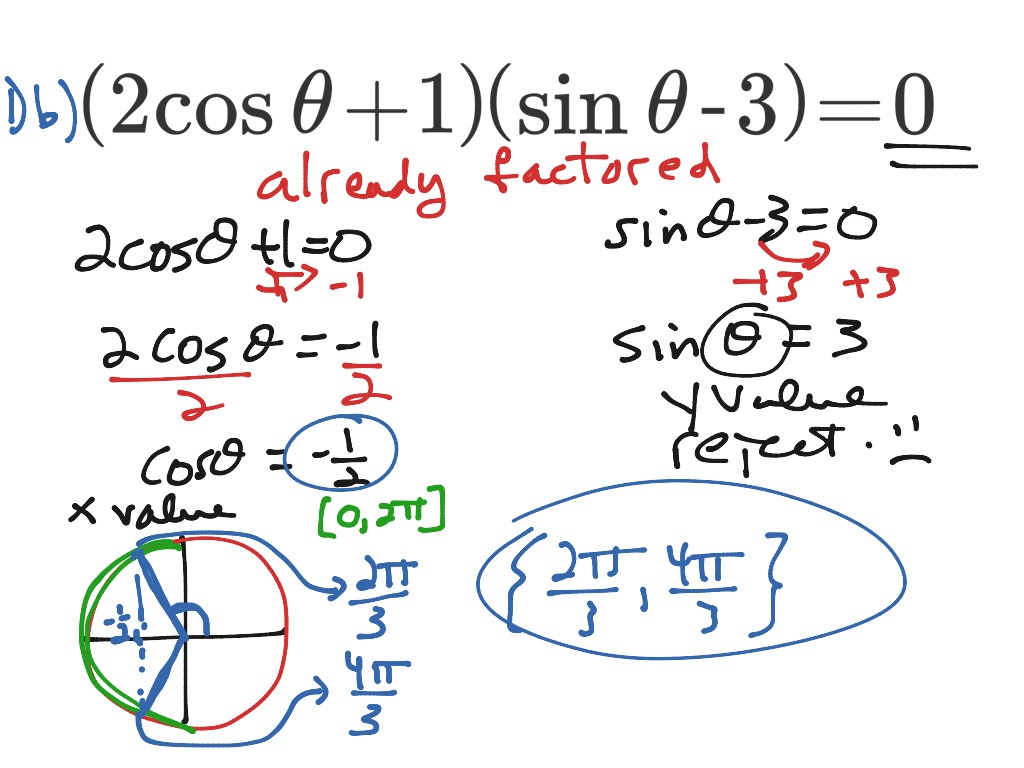 1) b) (2cos θ + 1)(sin θ - 3) = 0
already factored
2cosθ + 1 = 0
-1 -1
2cosθ = -1
2 2
cosθ = -1/2
x value
[0, 2π]
sinθ - 3 = 0
+3 +3
sinθ = 3
y value
reject
-1/2
2π/3
4π/3
{2π/3, 4π/3}